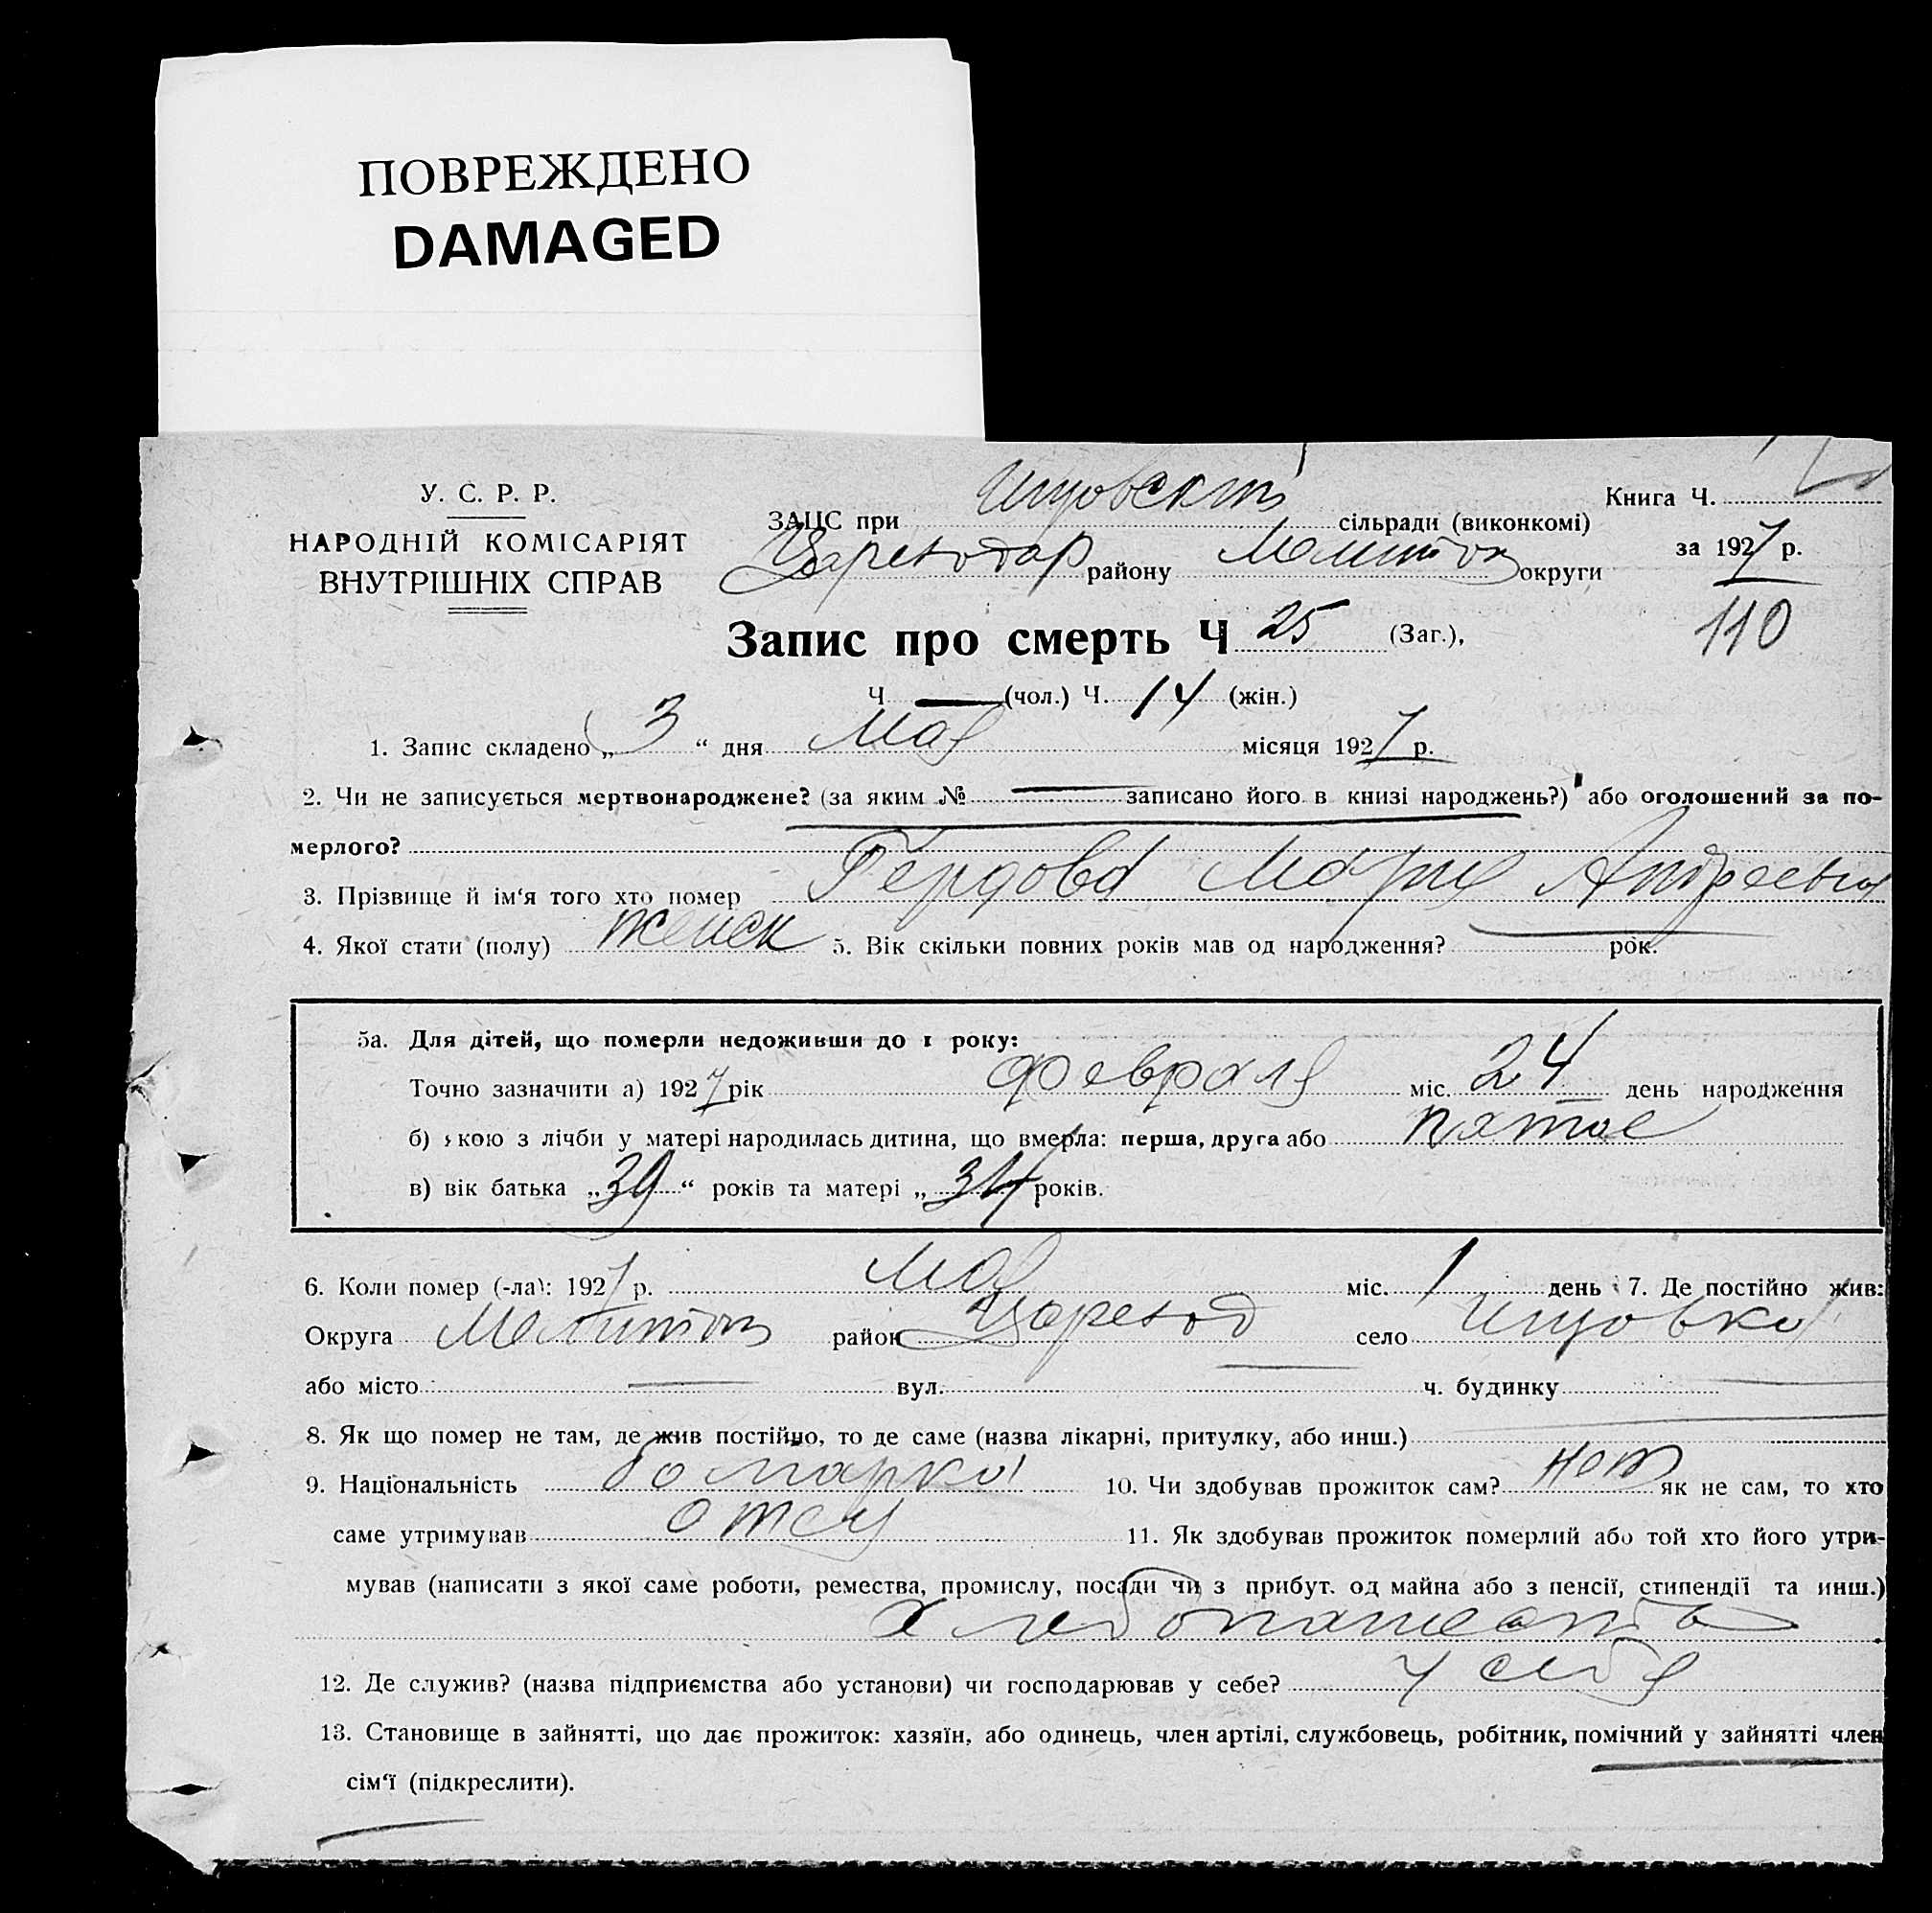 ПОВРЕЖДЕНО
DAMAGED
У. С. Р. Р.
НАРОДНІЙ КОМІСАРІЯТ
ВНУТРІШНІХ СПРАВ
ЗАЦС при сільради (виконкомі)
района Мелитоп округи
Книга Ч.
за 1927 р.
110
Запис про смерть Ч 25 (Заг.),
Ч — (чол.) Ч. 14 (жін.)
1. Запис складено „ 3 “ дня Мая місяця 1927 р.
2. Чи не записується мертвонароджене? (за яким № — записано його в книзі народжень?) або оголошений за по-
мерлого?
3. Прізвище й ім‘я того хто помер Гердова Мария Андреевна
4. Якої стати (полу) женск 5. Вік скільки повних років мав од народження? — рок.
5а. Для дітей, що померли недоживши до 1 року:
Точно зазначити а) 1927 рік февраля міс. 24 день народження
б) якою з лічби у матері народилась дитина, що вмерла: перша, друга або пятое
в) вік батька „39“ років та матері „34 років.
6. Коли помер (-ла): 1927 р. мая міс. 1 день 7. Де постійно жив:
Округа Мелитоп район Царевод село
або місто — вул. — ч. будинку —
8. Як що помер не там, де жив постійно, то де саме (назва лікарні, притулку, або инш.) —
9. Національність болгарка 10. Чи здобував прожиток сам? нет як не сам, то хто
саме утримував отец 11. Як здобував прожиток померлий або той хто його утри-
мував (написати з якої саме роботи, ремества, промислу, посади чи з прибут. од майна або з пенсії, стипендії та инш.)
хлебопашеств
12. Де служив? (назва підприємства або установи) чи господарював у себе? у себя
13. Становище в зайнятті, що дає прожиток: хазяїн, або одинець, член артілі, службовець, робітник, помічний у зайнятті член
сім‘ї (підкреслити).